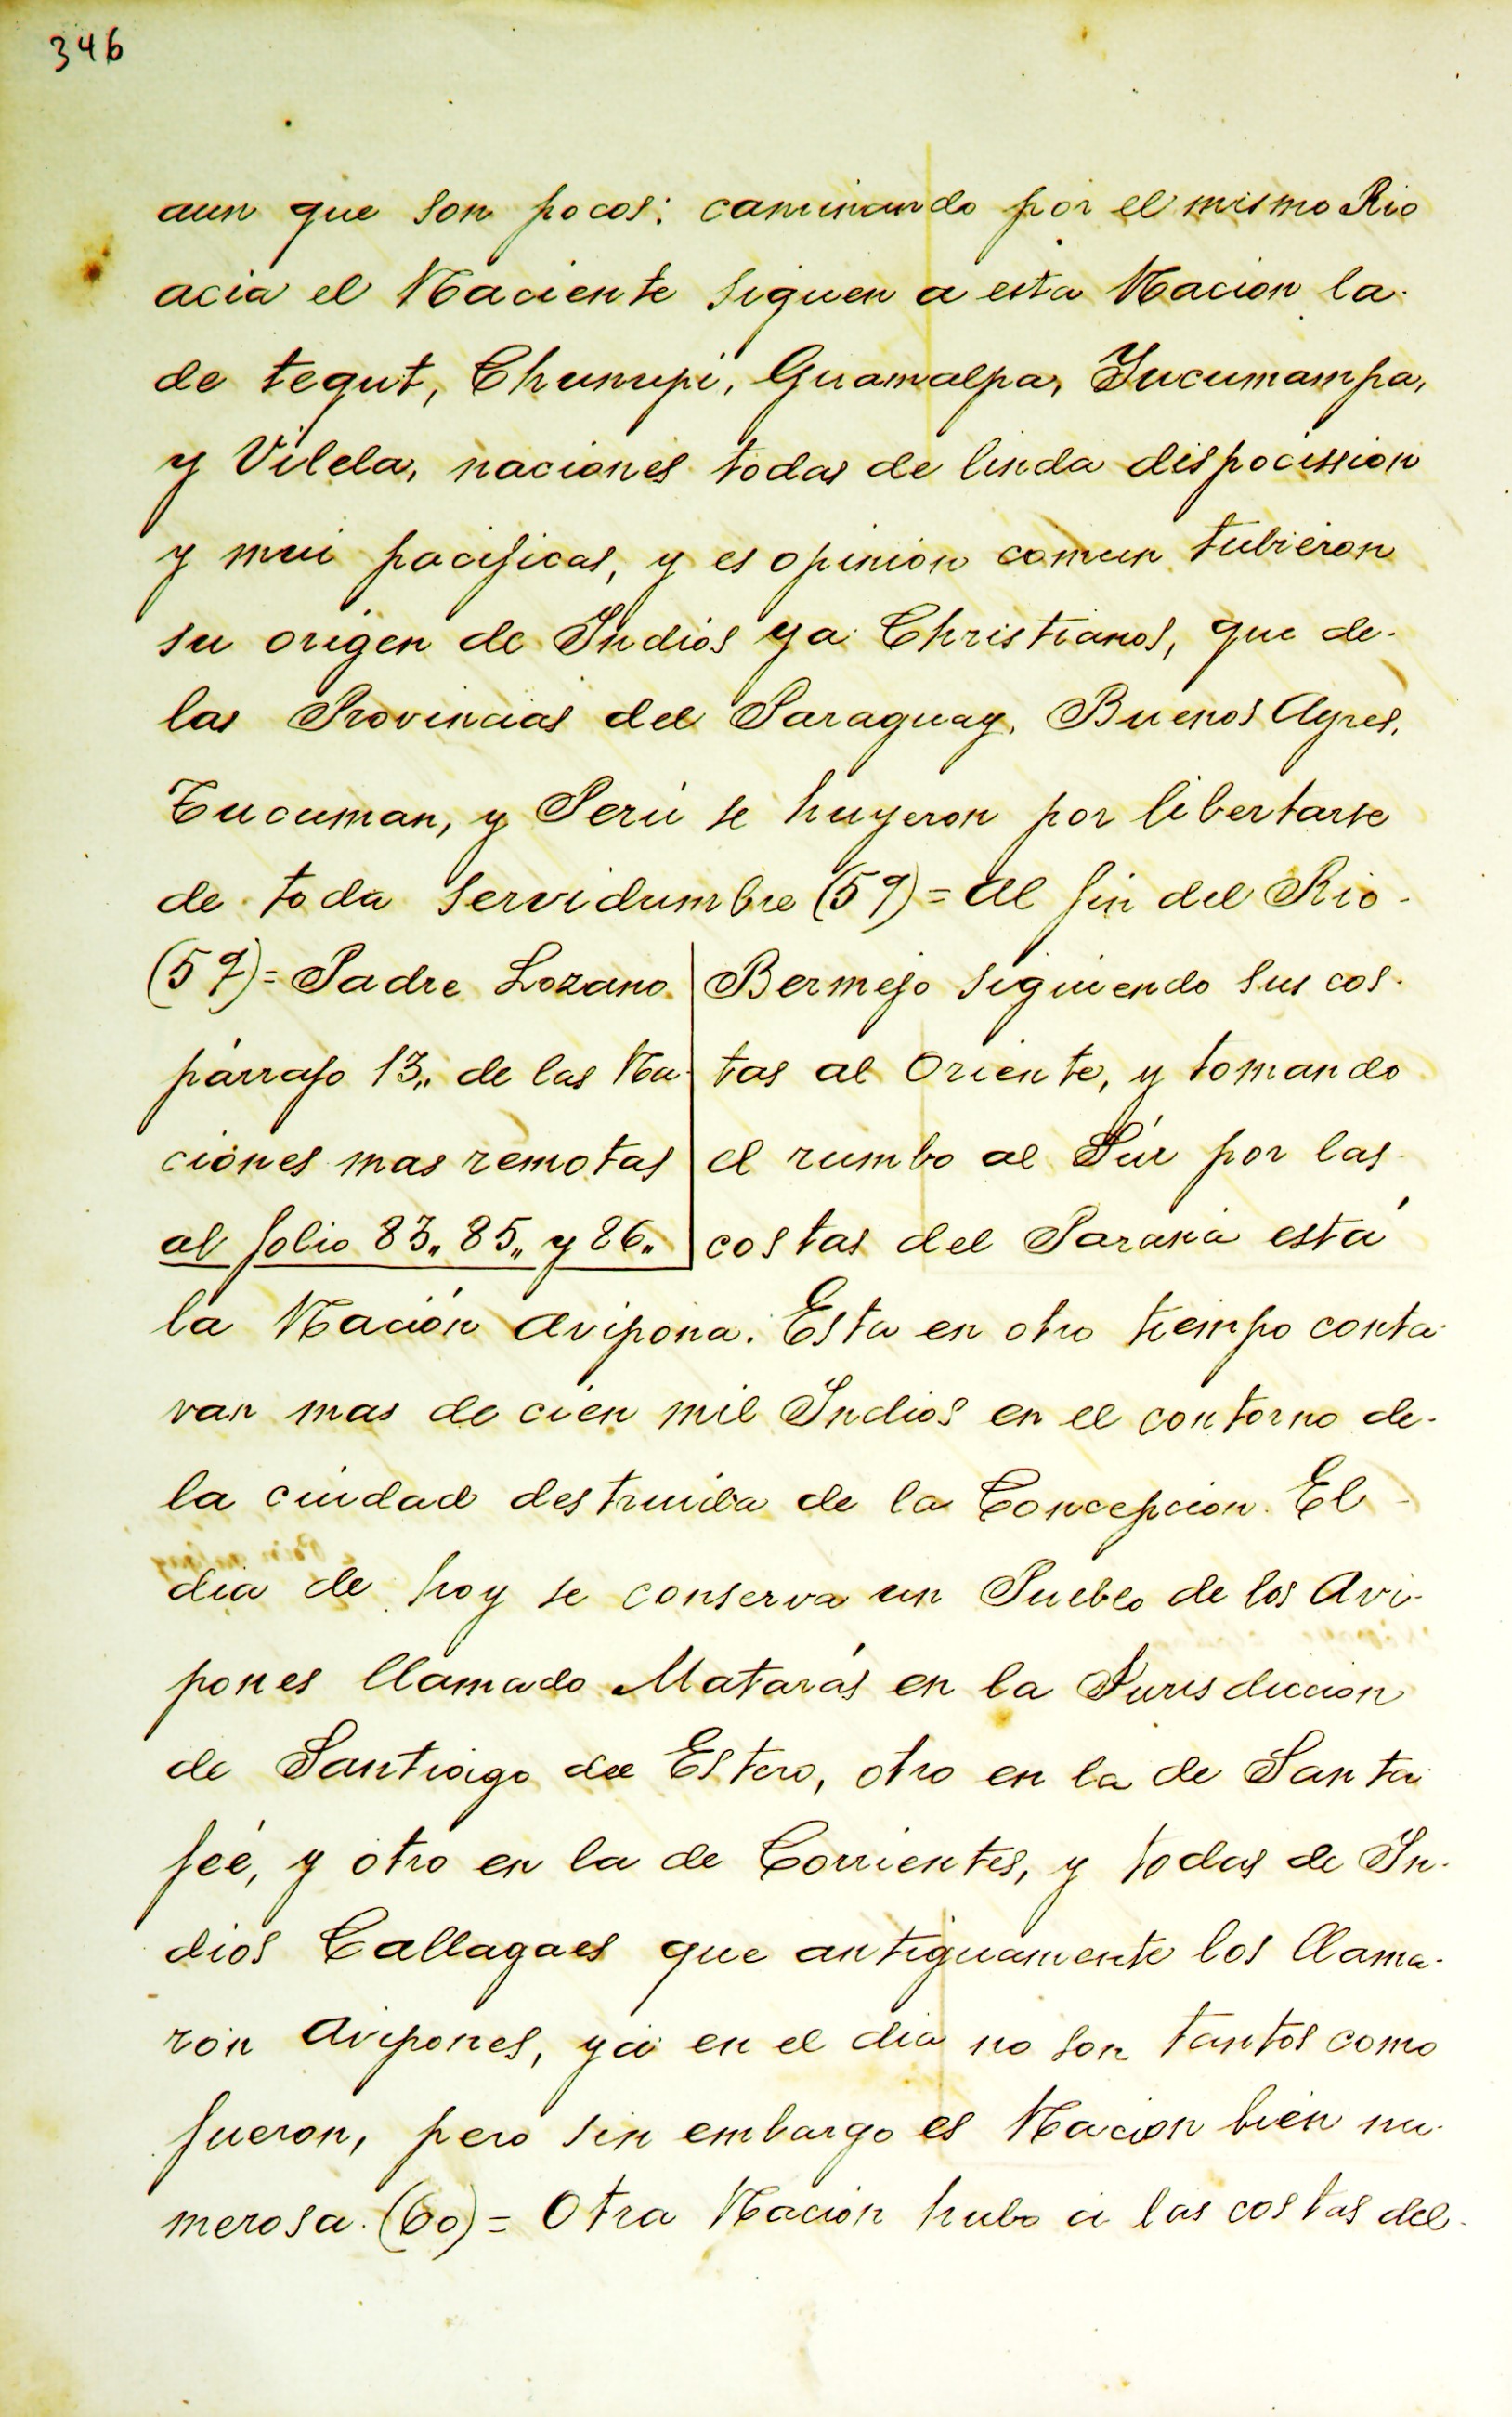 346
aun que son pocos: caminando por el mismo Rio
acia el Naciente siguen a esta Nacion la
de tequt, Chunupi, Guamalpa, Yucumampa,
y Vilela, naciones todas de linda dispocission
y mui pacificas, y es opinion comun tubieron
su origen de Indios ya Christianos, que de-
las Provincias del Paraguay, Buenos Ayres,
Tucuman, y Perú se huyeron por libertarse
de toda servidumbre (59) = Al fin del Rio-
(59) = Padre Lozano
párrafo 13,, de las Na-
ciones mas remotas
al folio 83,, 85,, y 86,,
Bermejo siguiendo sus cos-
tas al Oriente, y tomando
el rumbo al Súr por las
costas del Paraná está
la Nación Avipona. Esta en otro tiempo conta-
van mas de cien mil Indios en el contorno de-
la ciudad destruida de la Concepcion. El
dia de hoy se conserva un Pueblo de los Avi-
pones llamado Matarás en la Jurisdiccion
de Santiago del Estero, otro en la de Santa
feé, y otro en la de Corrientes, y todas de In-
dios Callagaes que antiguamente los llama-
ron Avipones, yá en el dia no son tantos como
fueron, pero sin embargo es Nacion bien nu-
merosa. (60) = Otra Nacion hubo á las costas del-